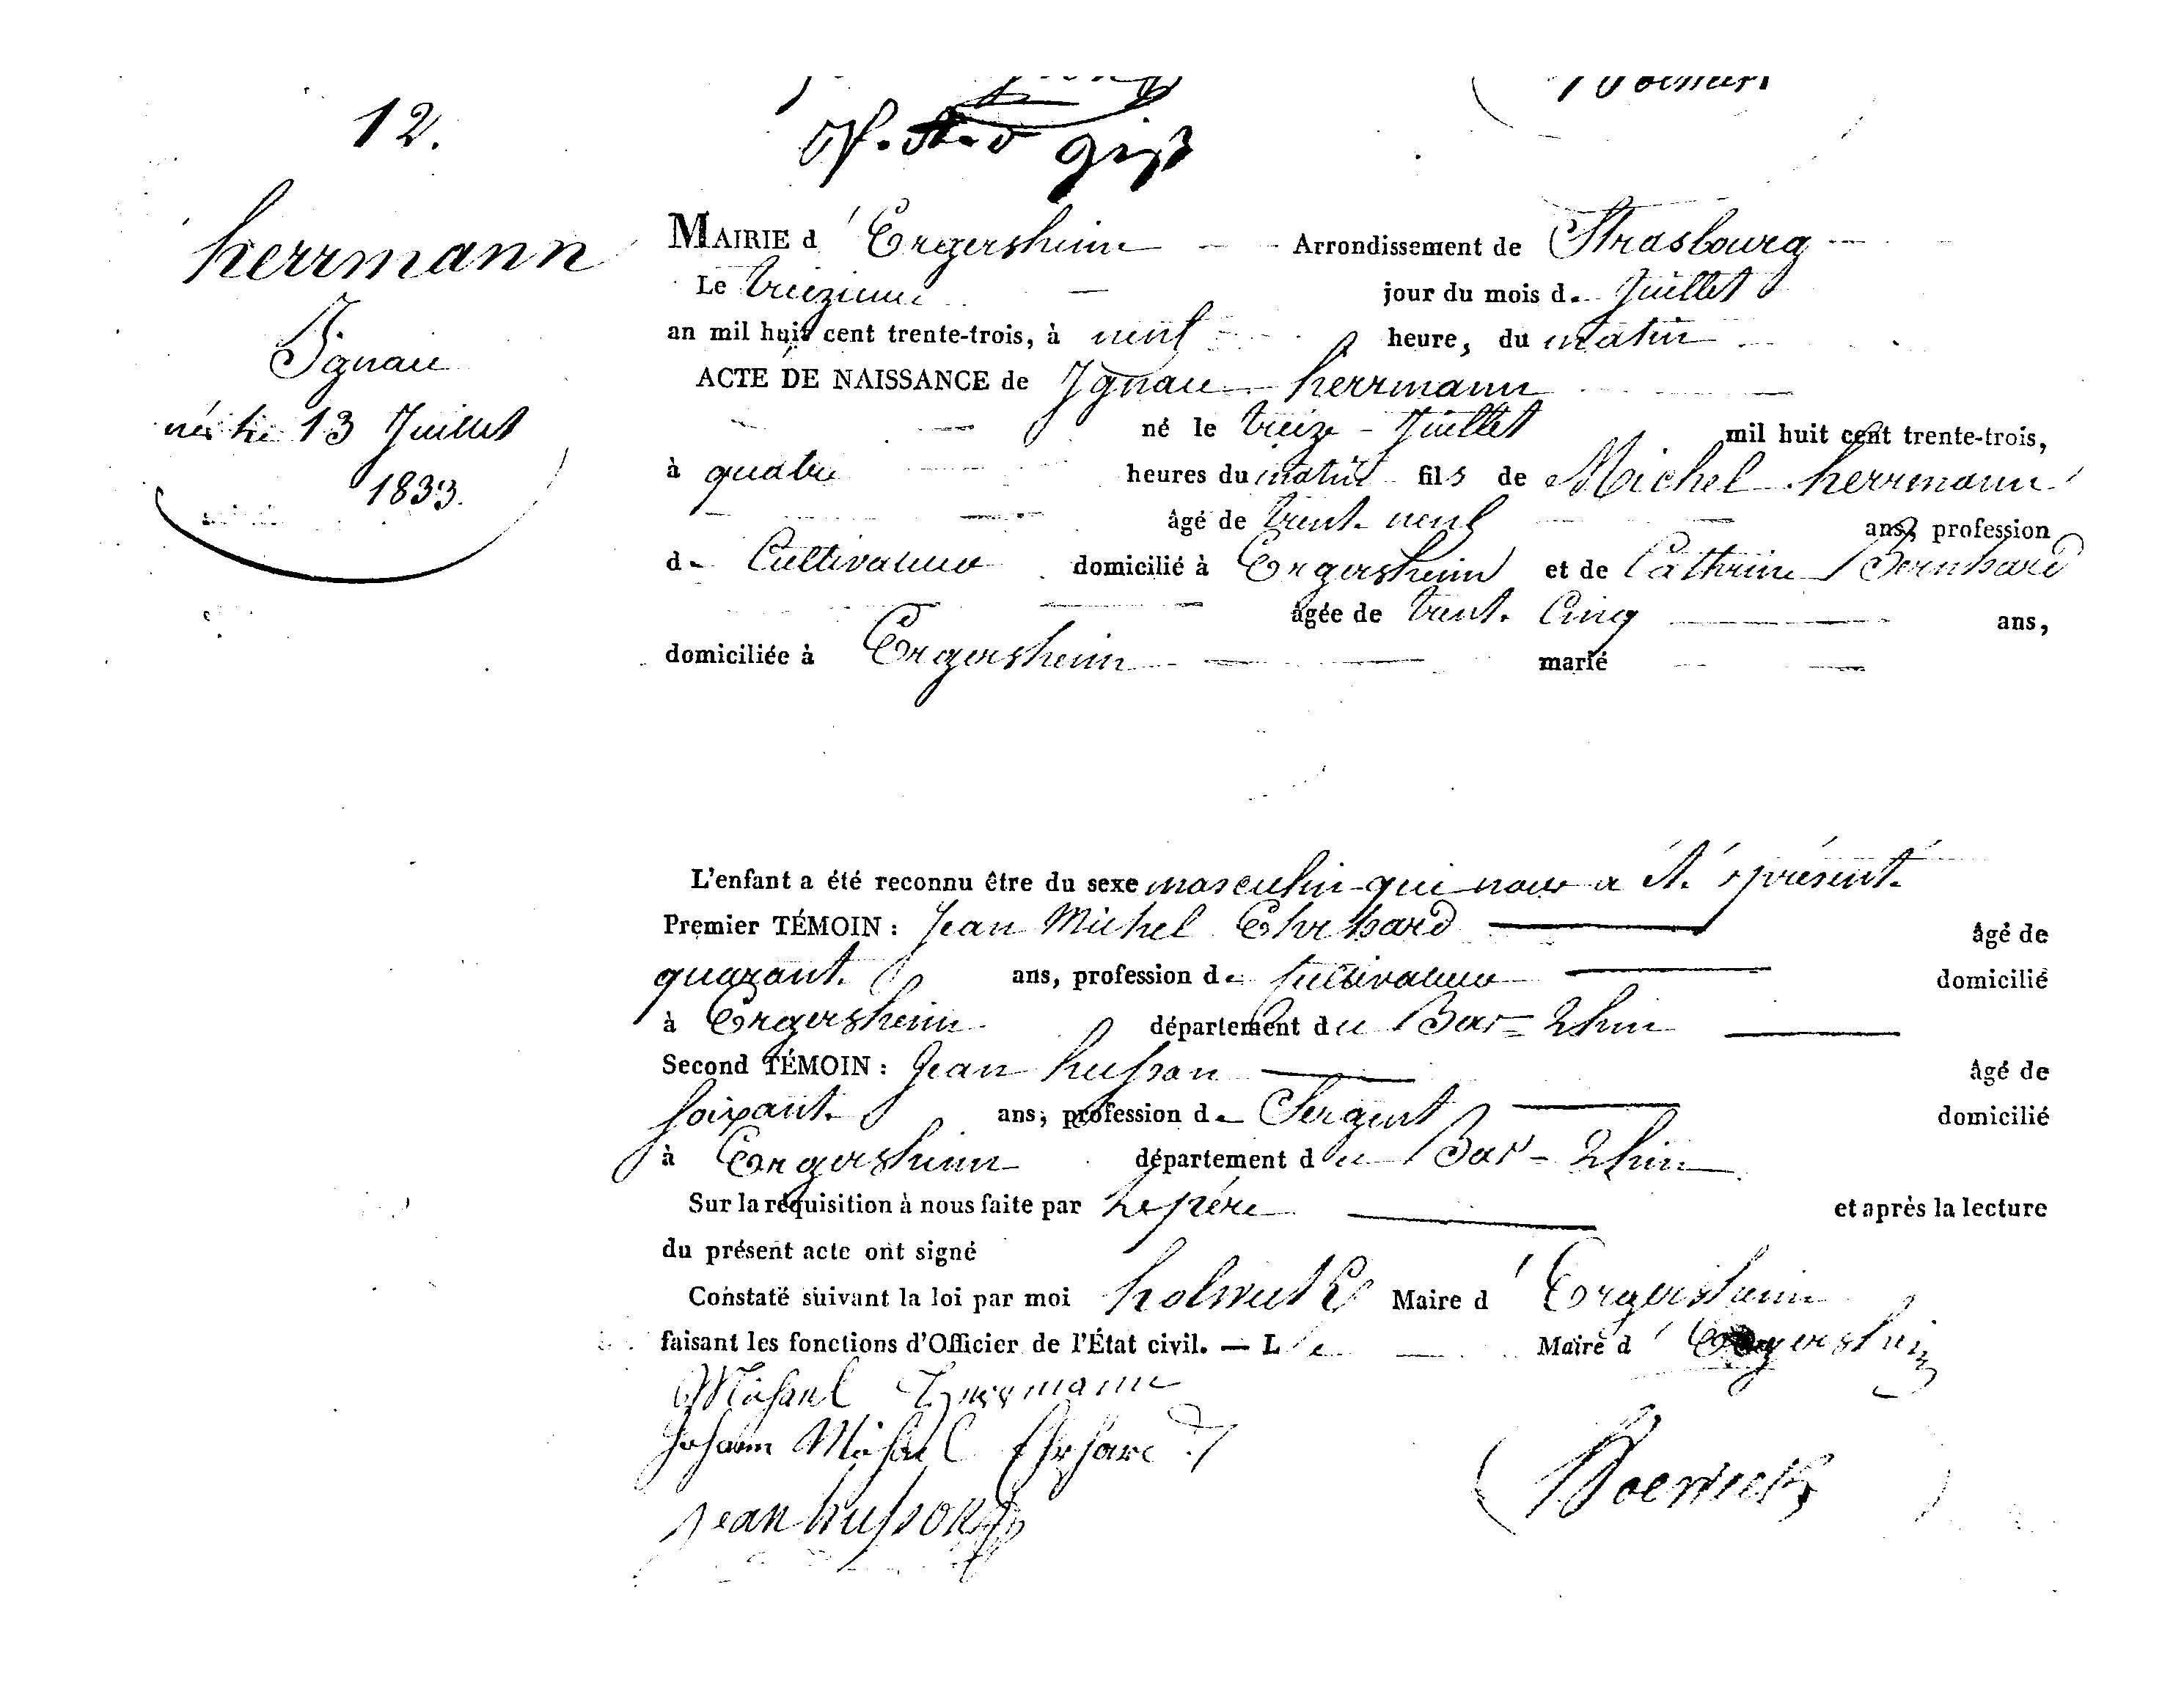 12.
herrmann
Ignace
né le 13 Juillet
1833.
MAIRIE d'Ergersheim Arrondissement de Strasbourg
Le treizieme jour du mois de Juillet
an mil huit cent trente-trois, à neuf heure, du matin
ACTE DE NAISSANCE de Ignace herrmann
né le treize Juillet mil huit cent trente-trois,
à quatre heures du matin fils de Michel herrmann
âgé de trente neuf ans, profession
de Cultivateur domicilié à Ergersheim et de Cathrine Bernhard
âgée de trente Cinq ans,
domiciliée à Ergersheim marié
L'enfant a été reconnu être du sexe masculin qui nous a été présenté
Premier TÉMOIN : Jean Michel Ehrhard âgé de
quarante ans, profession de cultivateur domicilié
à Ergersheim département du Bas-Rhin
Second TÉMOIN : Jean husson âgé de
soixante ans, profession de Sergent domicilié
à Ergersheim département du Bas-Rhin
Sur la réquisition à nous faite par le père et après la lecture
du présent acte ont signé
Constaté suivant la loi par moi Maire d'Ergersheim
faisant les fonctions d'Officier de l'État civil. — Le Maire d'Ergersheim
Michael Herrmann
Johann Michael Ehrhard
jean husson